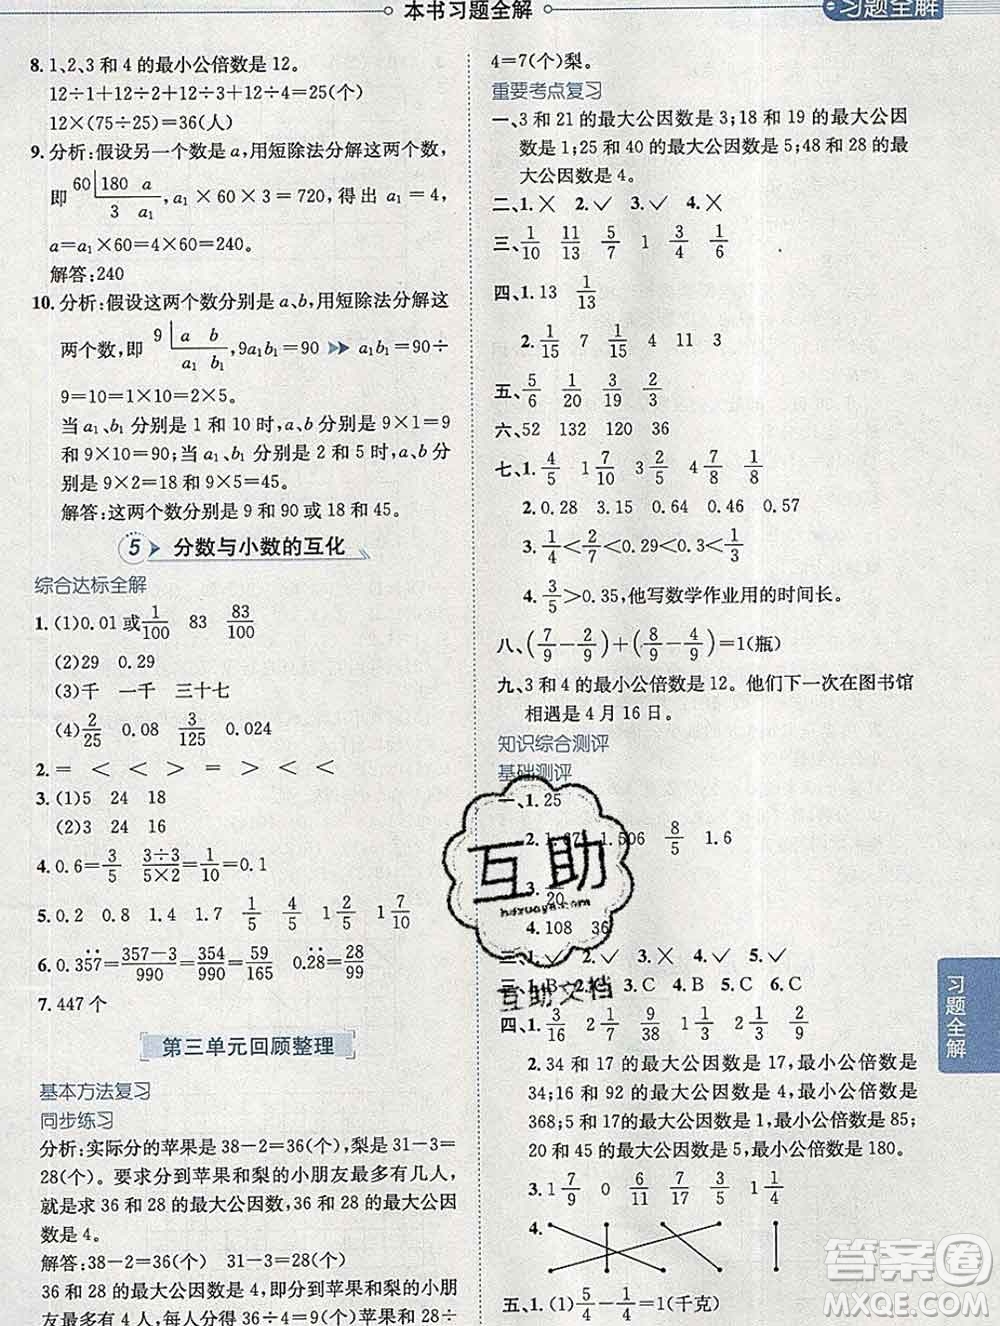 本书习题全解
习题全解
8. 1、2、3 和 4 的最小公倍数是 12。
12÷1+12÷2+12÷3+12÷4=25(个)
12×(75÷25)=36(人)
9. 分析:假设另一个数是 a,用短除法分解这两个数,
即 60|180 a / 3 a₁ ,a₁×60×3=720,得出 a₁=4,
a=a₁×60=4×60=240。
解答:240
10. 分析:假设这两个数分别是 a、b,用短除法分解这
两个数,即 9|a b / a₁ b₁ ,9a₁b₁=90 ▶▶ a₁b₁=90÷
9=10=1×10=2×5。
当 a₁、b₁ 分别是 1 和 10 时,a、b 分别是 9×1=9
和 9×10=90;当 a₁、b₁ 分别是 2 和 5 时,a、b 分别
是 9×2=18 和 9×5=45。
解答:这两个数分别是 9 和 90 或 18 和 45。
5 分数与小数的互化
综合达标全解
1. (1)0.01 或 1/100 83 83/100
(2)29 0.29
(3)千 一千 三十七
(4) 2/25 0.08 3/125 0.024
2. = < < > = >
3. (1)5 24 18
(2)3 24 16
4. 0.6=3/5 (3÷3)/(5×2)=1/10=0.1
5. 0.2 0.8 1.4 1.7 1/5 4/5 1 2/5 1 7/10
6. 0.3̇57̇=(357-3)/990=354/990=59/165 52/165
7. 447 个
第三单元回顾整理
基本方法复习
同步练习
分析:实际分的苹果是 38-2=36(个),梨是 31-3=
28(个)。要求分到苹果和梨的小朋友最多有几人,
就是求 36 和 28 的最大公因数,36 和 28 的最大公因
数是 4。
解答:38-2=36(个) 31-3=28(个)
36 和 28 的最大公因数是 4,即分到苹果和梨的小朋
友最多有 4 人,每人分得 36÷4=9(个)苹果和 28÷
4=7(个)梨。
重要考点复习
一、3 和 21 的最大公因数是 3;18 和 19 的最大公因
数是 1;25 和 40 的最大公因数是 5;48 和 28 的最
大公因数是 4。
二、1. × 2. ✓ 3. ✓ 4. ×
三、1/10 11/13 5/7 1 3/4 1/6
四、1. 13 1/13
2. 1/15 7 1/15 4 11 3
五、5/6 1/20 3/19 2/3
六、52 132 120 36
七、1. 4/5 1 7/10 3 2/5 4 7/8 1/8
2. 0.28 3.15 0.64 0.46 0.57
3. 1/4<2/7<0.3<1/3
4. 3/5>0.35,他写数学作业用的时间长。
八、(7/9-2/9)+(8/9-4/9)=1(瓶)
九、3 和 4 的最小公倍数是 12。他们下一次在图书馆
相遇是 4 月 16 日。
知识综合测评
基础测评
一、1. 25
2. 1.506 8/5 1.6
3. 20
4. 108 36
✓ 2. ✓ 3. ✓ 4. ✓ 5. ✓
三、1. B 2. C 3. C 4. B 5. C
四、1. 3/16 2 1/7 9/38 1 2/3 2/9
2. 34 和 17 的最大公因数是 17,最小公倍数是
34;16 和 92 的最大公因数是 4,最小公倍数是
368;5 和 17的最大公因数是 1,最小公倍数是 85;
20 和 45 的最大公因数是 5,最小公倍数是 180。
3. 1 7/9 0 6/11 7/17 3/5 1 1/4
4.
五、1. (1) 5/4-1/4=1(千克)
习题全解
互助
互助文档
答案圈
MXQE.COM